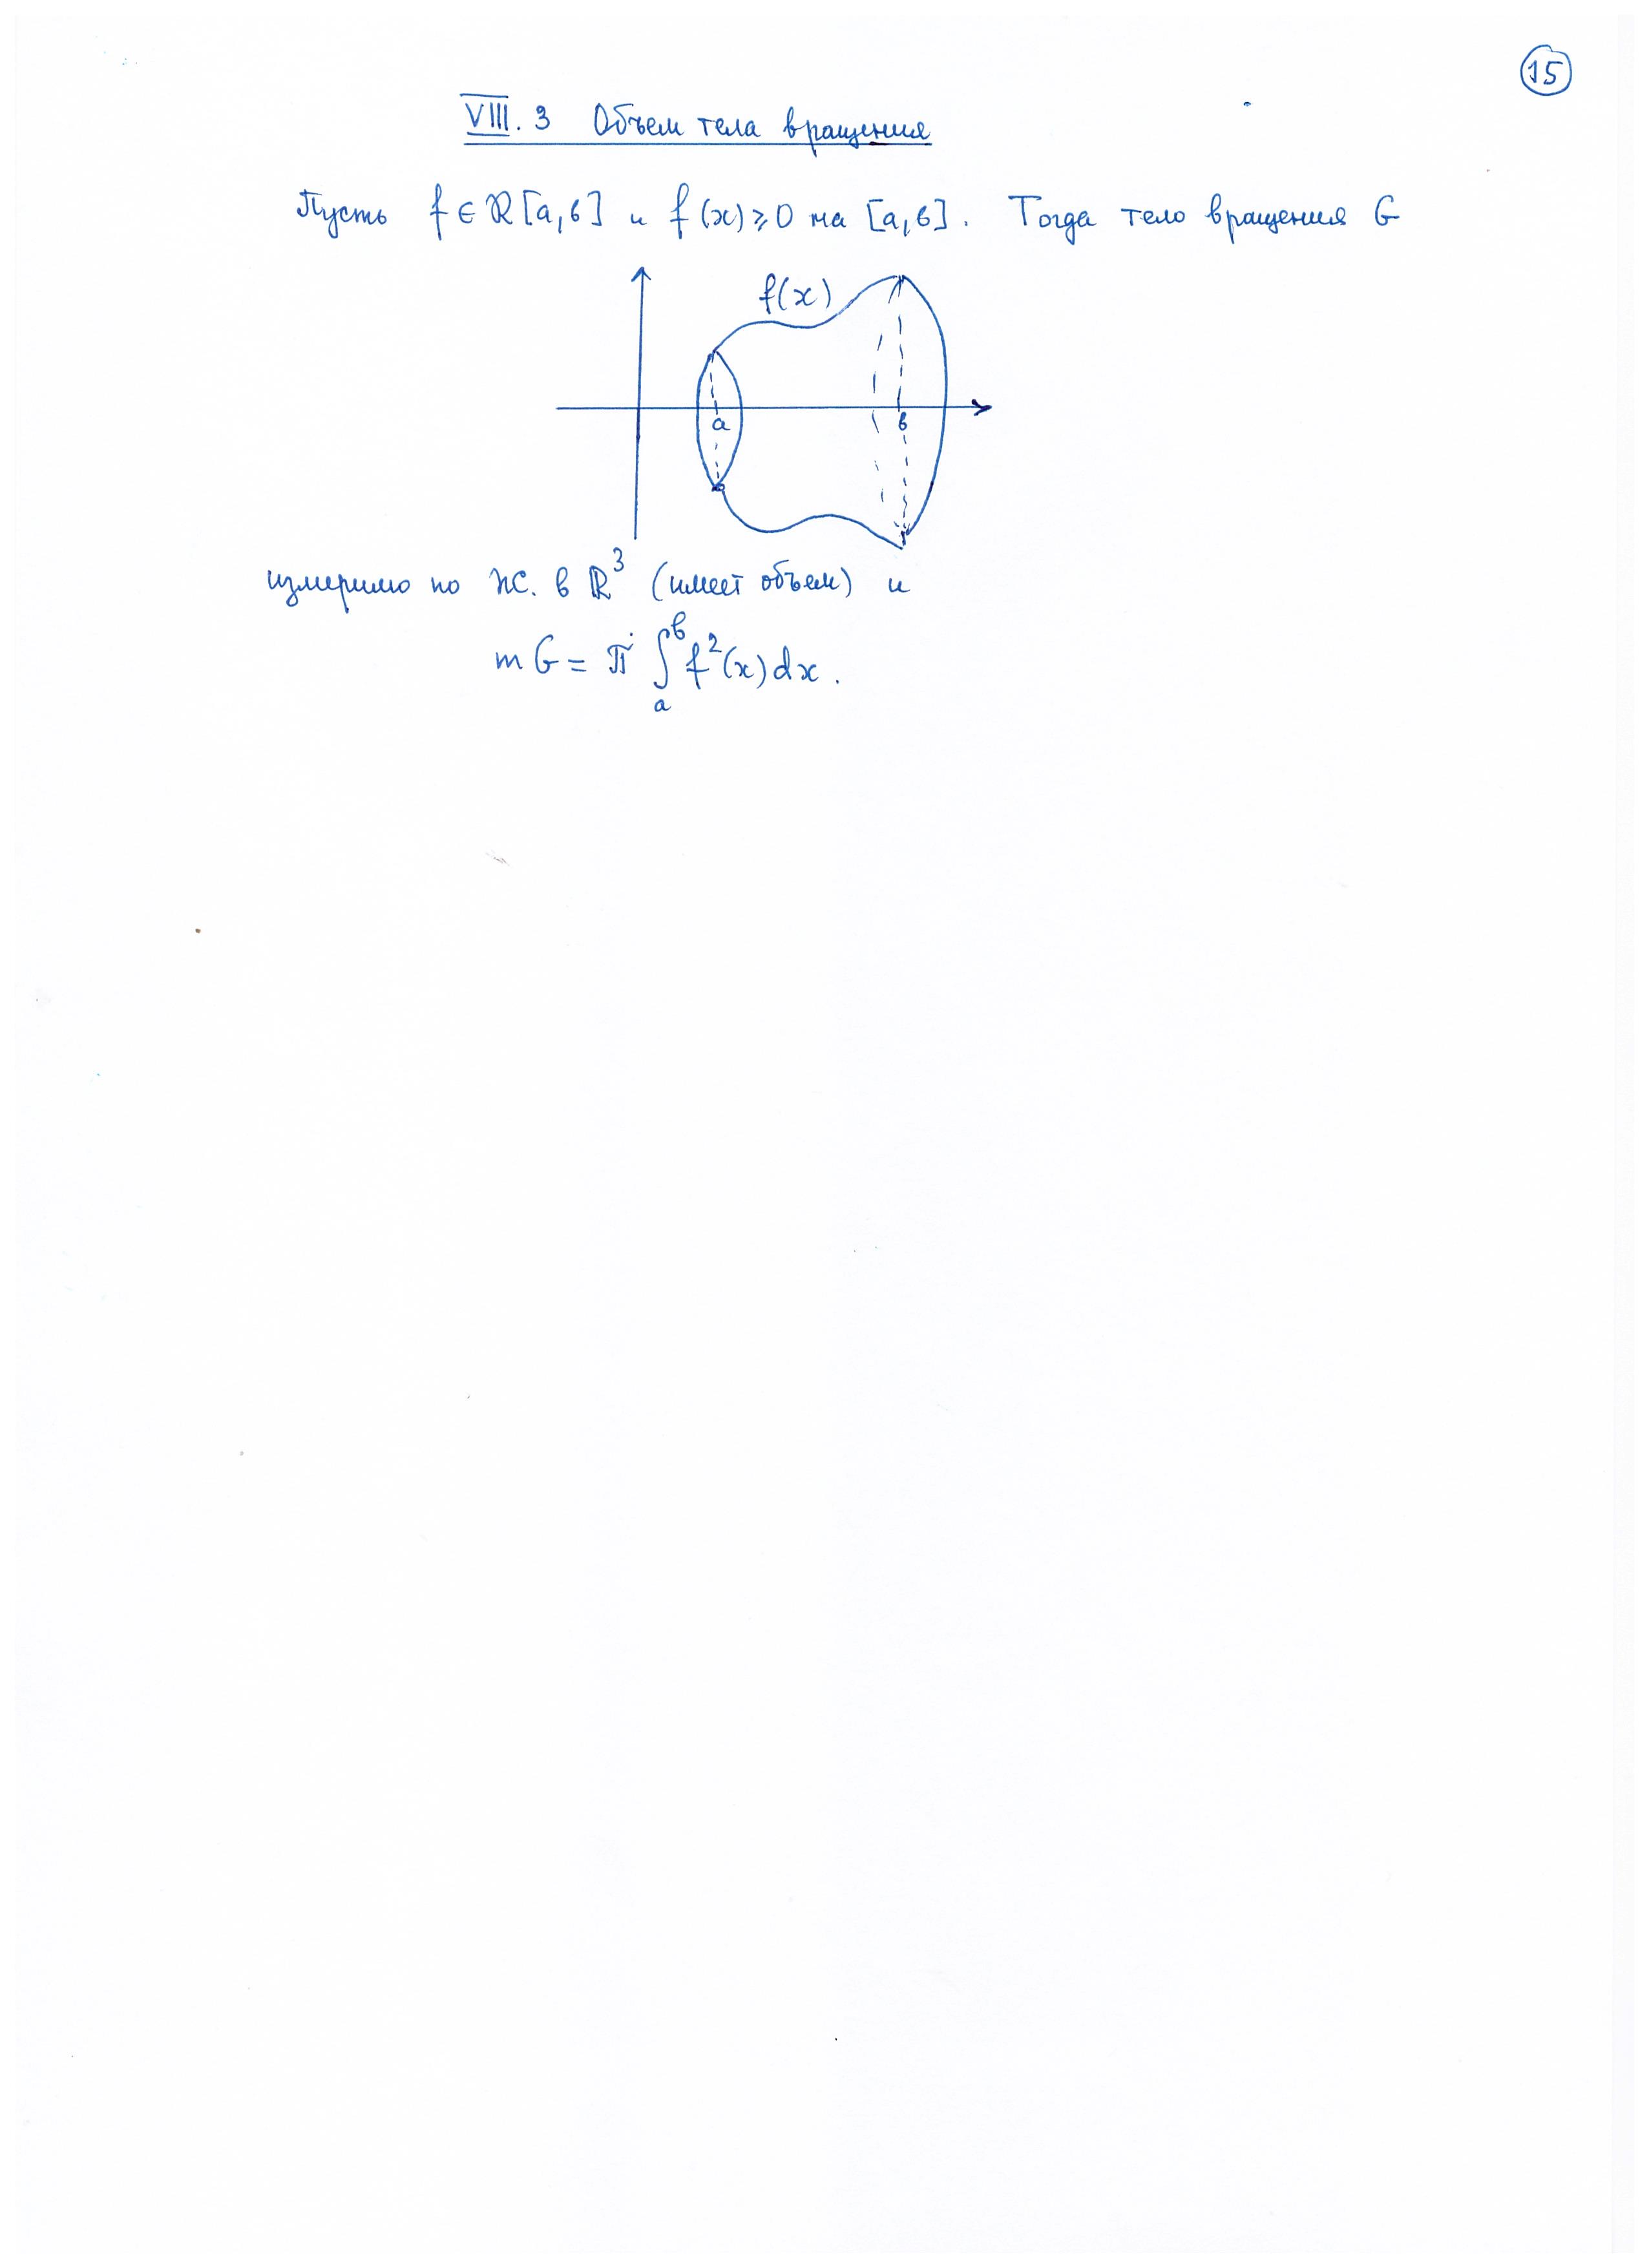 15
VIII. 3 Объем тела вращения
Пусть f ∈ ℝ[a,b] и f(x) ≥ 0 на [a,b]. Тогда тело вращения G
f(x)
a b
измеримо по Ж. в ℝ³ (имеет объем) и
m G = π ∫ₐᵇ f²(x) dx.